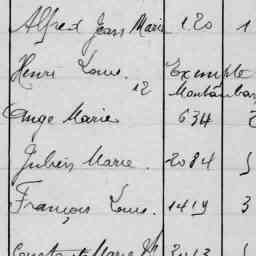 Alfred Jean Marie 120 1
Henri Louis. Exempte
12 Montauban
Ange Marie 634
Julien Marie. 2084
François Louis. 1419 3
Constant Marie